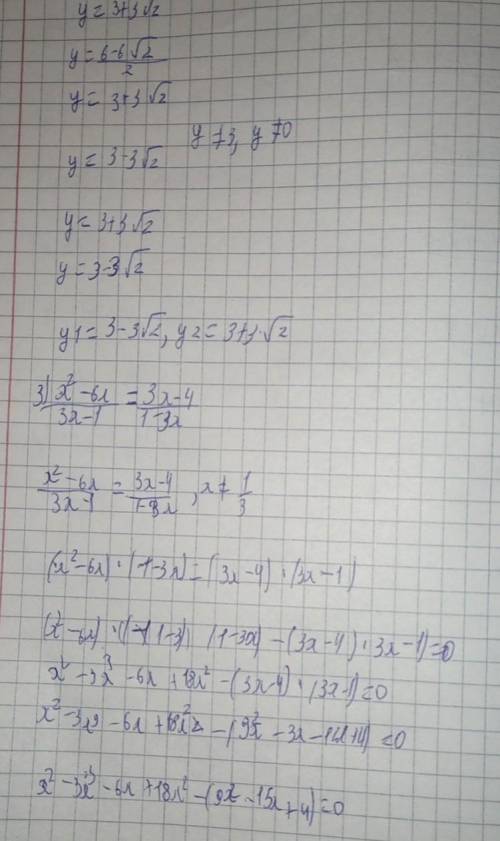 y = 3+3√2
y = 6-6√2 / 2
y = 3+3√2
y ≠ 3, y ≠ 0
y = 3-3√2
y = 3+3√2
y = 3-3√2
y1 = 3-3√2, y2 = 3+3√2
3) x²-6x / 3x-1 = 3x-4 / 1-3x
x²-6x / 3x-1 = 3x-4 / 1-3x, x ≠ 1/3
(x²-6x)·(1-3x) = (3x-4)·(3x-1)
(1-3x) -(3x-4)·3x-1)=0
x² -3x³ -6x +18x² -(3x-4)·(3x-1)=0
-6x +18x²
x² -3x³ -6x +18x² -(9x² -15x +4)=0